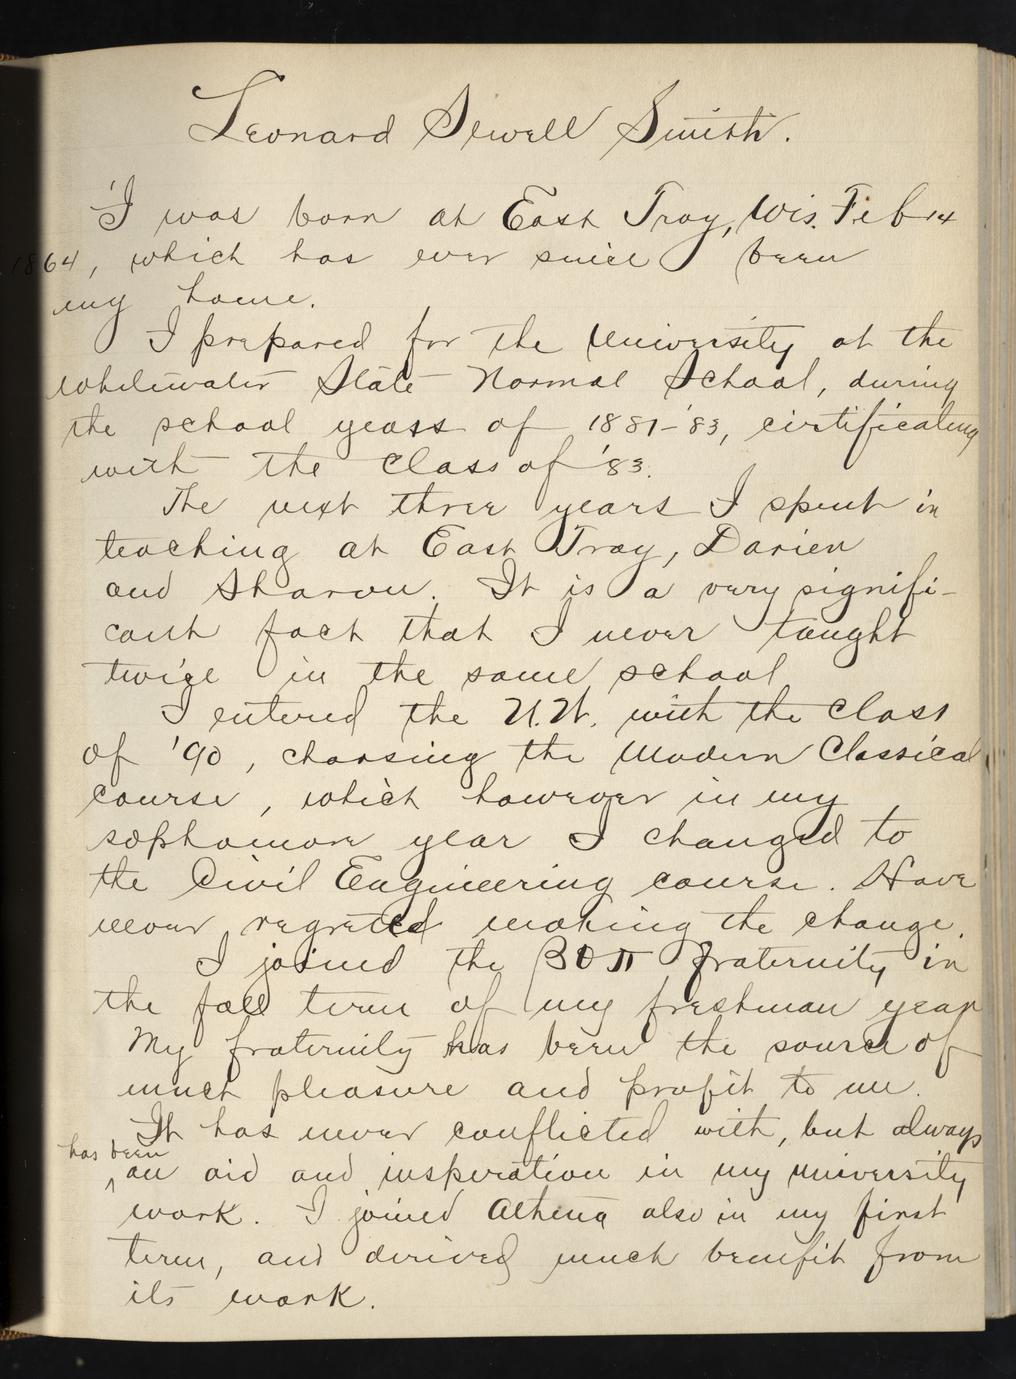 Leonard Sewell Smith.
I was born at East Troy, Wis. Feb 14
1864, which has ever since been
my home.
I prepared for the University at the
Whitewater State Normal School, during
the school years of 1881-'83, certificating
with the class of '83.
The next three years I spent in
teaching at East Troy, Darien
and Sharon. It is a very signifi-
cant fact that I never taught
twice in the same school
I entered the U.W. with the class
of '90, choosing the Modern Classical
course, which however in my
sophomore year I changed to
the Civil Engineering course. Have
never regretted making the change.
I joined the ΒΘΠ fraternity in
the fall term of my freshman year
My fraternity has been the source of
much pleasure and profit to me.
It has never conflicted with, but always
has been
an aid and insperation in my university
work. I joined Athena also in my first
term, and derived much benefit from
its work.